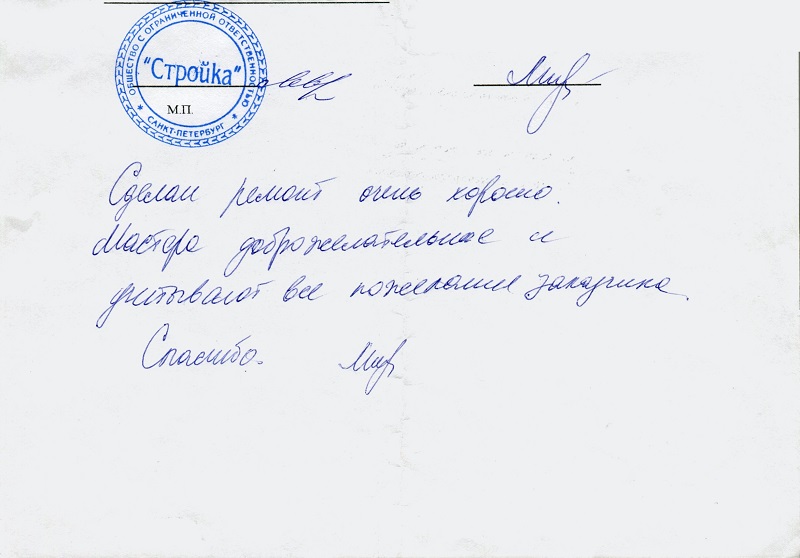 ОБЩЕСТВО С ОГРАНИЧЕННОЙ ОТВЕТСТВЕННОСТЬЮ
"Стройка"
М.П.
* САНКТ-ПЕТЕРБУРГ *
Сделан ремонт очень хорошо.
Мастера доброжелательные и
учитывают все пожелания заказчика.
Спасибо.